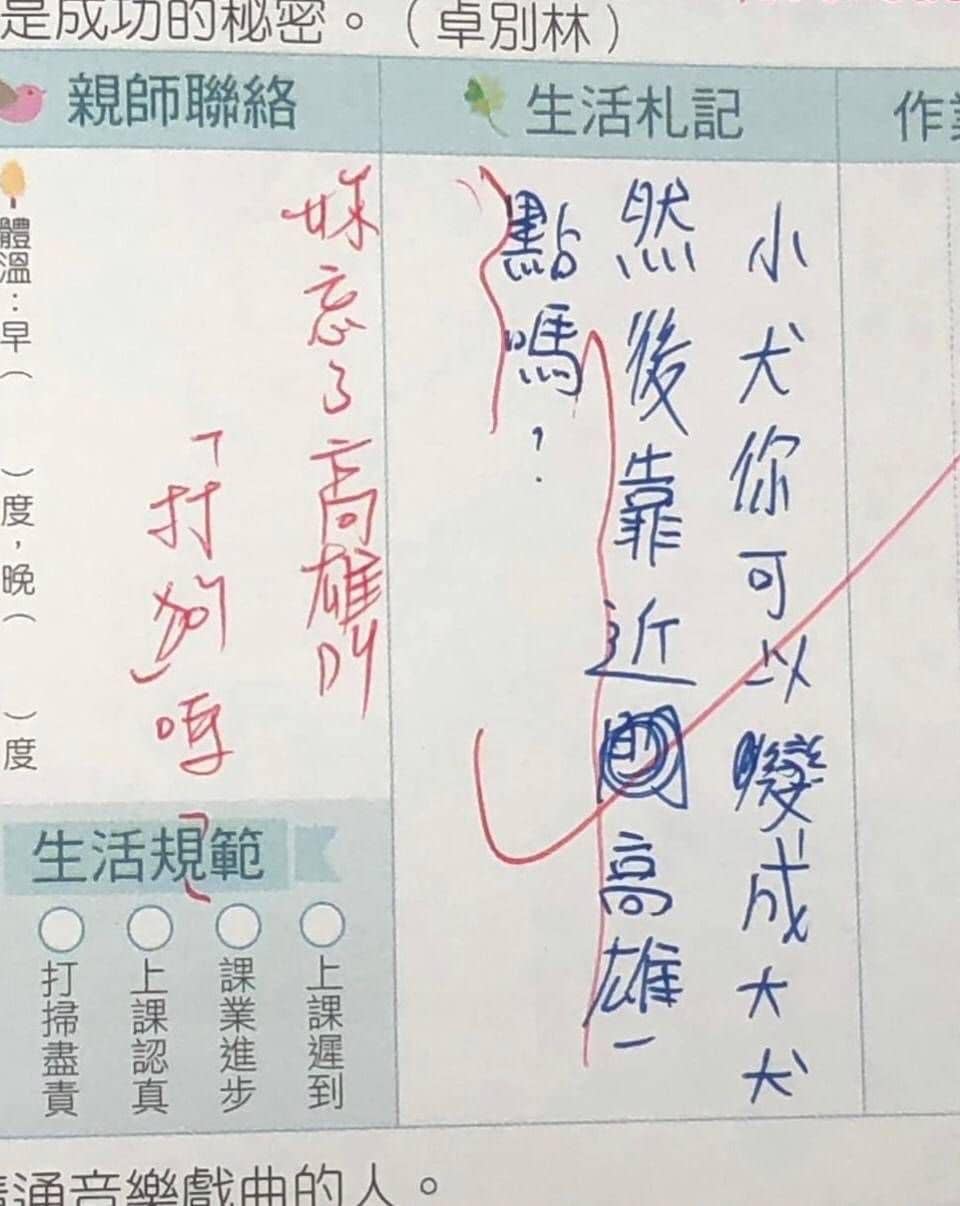 是成功的秘密。（卓別林）
親師聯絡
生活札記
作業
小犬你可以變成大犬
然後靠近高雄一
點嗎？
妹忘了高雄叫
「打狗」嗎
體溫：早（　）度，晚（　）度
生活規範
上課遲到
課業進步
上課認真
打掃盡責
精通音樂戲曲的人。